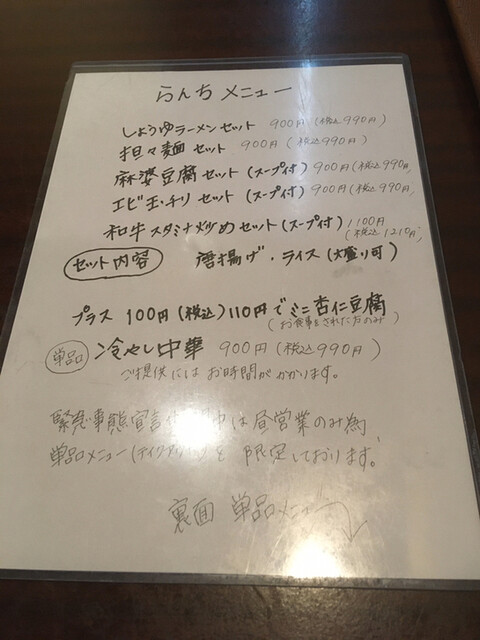 らんち メニュー
しょうゆラーメン セット 900円 (税込990円)
担々麺 セット 900円 (税込990円)
麻婆豆腐セット (スープ付) 900円 (税込990円)
エビ玉・チリ セット (スープ付) 900円 (税込990円)
和牛スタミナ炒めセット (スープ付) 1100円
(税込1210円)
セット内容 唐揚げ・ライス (大盛り可)
プラス 100円 (税込) 110円でミニ杏仁豆腐
(お食事をされた方のみ)
単品 冷やし中華 900円 (税込990円)
ご提供にはお時間がかかります。
緊急事態宣言 中は昼営業のみ為、
単品メニュー (テイクアウト を限定しております。
裏面 単品メニュー